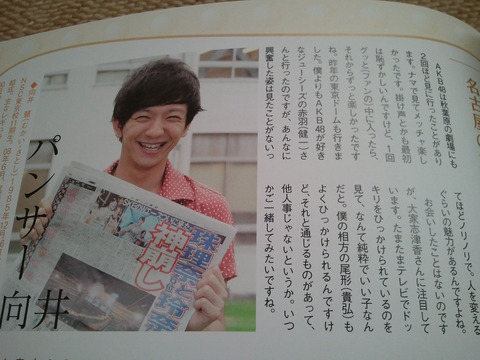 名古屋の
AKB48は秋葉原の劇場にも
2回ほど見に行ったことがあり
ます。ナマで見てメッチャ楽し
かったです。掛け声とかも最初
は恥ずかしいんですけど、1回
グッと（ファンの）中に入ったら、
それからずっと楽しかったです
ね。昨年の東京ドームも行きま
した。僕よりもAKB48が好き
なジューシーズの赤羽（健一）さ
んと行ったのですが、あんなに
興奮した姿は見たことがないっ
てほどノリノリで。人を変える
ぐらいの魅力があるんですよね。
お会いしたことはないのです
が、大家志津香さんに注目して
います。たまたまテレビでドッ
キリをひっかけられているのを
見て、なんて純粋でいい子なん
だと。僕の相方の尾形（貴弘）も
よくひっかけられるんですけ
ど、それと通じるものがあって、
他人事じゃないというか。いつ
かご一緒してみたいですね。
パンサー向井
珠理奈と玲奈
神崩し